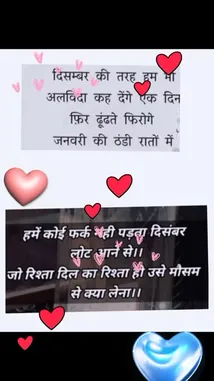 दिसम्बर की तरह हम भी
अलविदा कह देंगे एक दिन
फ़िर ढूंढते फिरोगे
जनवरी की ठंडी रातों में
हमें कोई फर्क नही पड़ता दिसंबर
लोट आने से।।
जो रिश्ता दिल का रिश्ता हो उसे मौसम
से क्या लेना।।